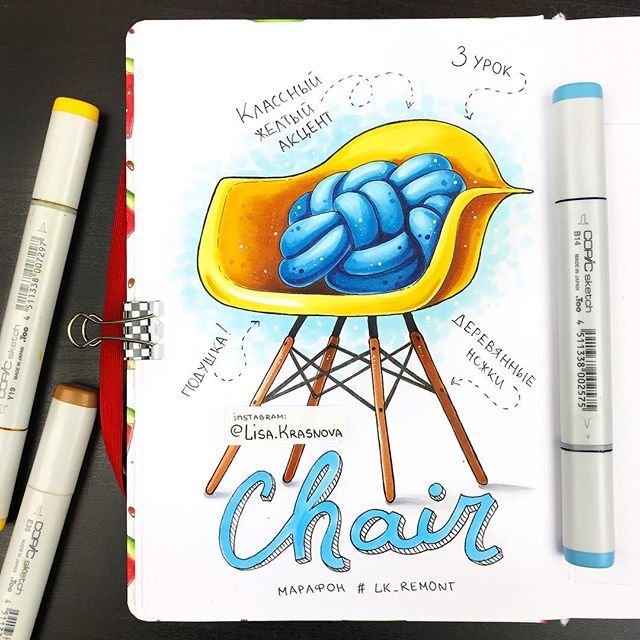 3 УРОК
КЛАССНЫЙ
ЖЕЛТЫЙ
АКЦЕНТ
ПОДУШКА!
ДЕРЕВЯННЫЕ
НОЖКИ
INSTAGRAM:
@LISA.KRASNOVA
Chair
МАРАФОН # LK_REMONT
COPIC sketch
MADE IN JAPAN .Too
Y19
4 511338 007297
COPIC sketch
B14
MADE IN JAPAN .Too
4 511338 002575
COPIC sketch
E35